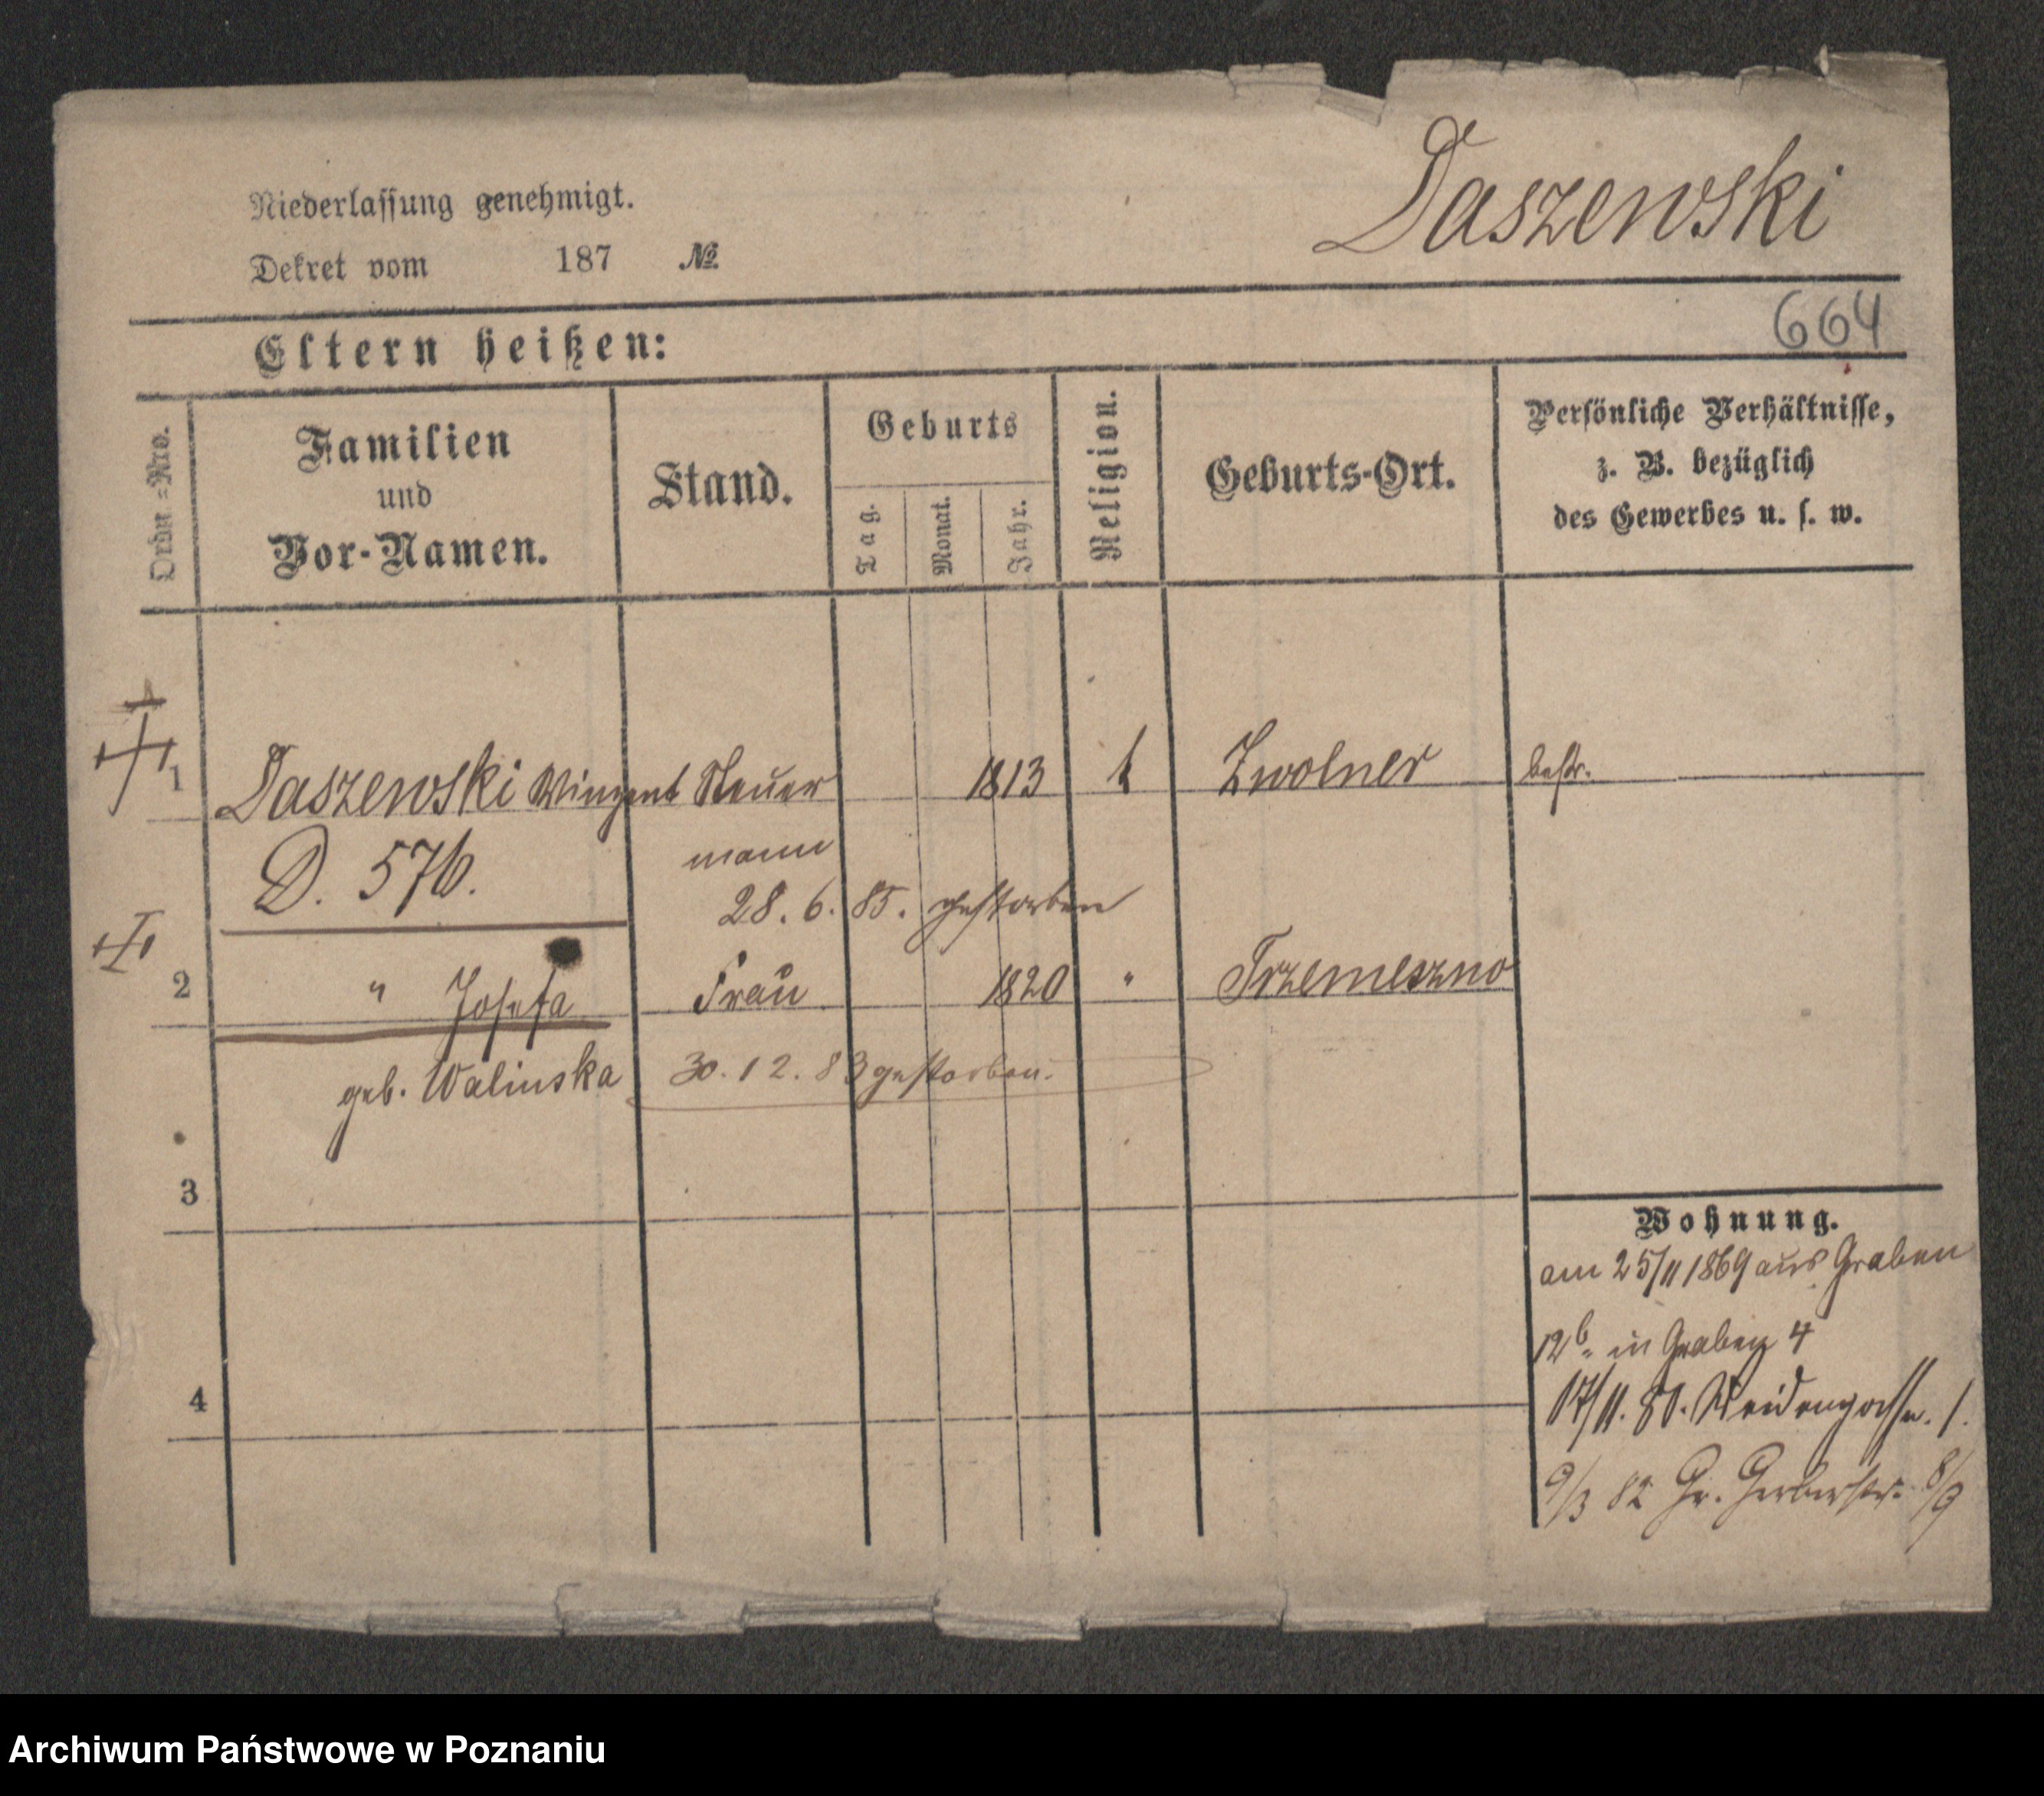 Daszewski
Niederlassung genehmigt.
Dekret vom 187 №
664
Eltern heißen:
Ordn.=Nro.
Familien
und
Vor-Namen.
Stand.
Geburts
Tag.
Monat.
Jahr.
Religion.
Geburts-Ort.
Persönliche Verhältnisse,
z. B. bezüglich
des Gewerbes u. s. w.
1 Daszewski Winzent Steuer 1813 k Zwolner bestr.
mann
D. 576.
28. 6. 85. gestorben
2 " Josefa Frau 1820 " Trzemeszno
geb. Walinska 30. 12. 83 gestorben.
3
4
Wohnung.
am 25/11 1869 aus Graben
12b. in Graben 4
17/11. 80. Weidengasse. 1.
9/3 82 Gr. Gerberstr. 8/9
Archiwum Państwowe w Poznaniu